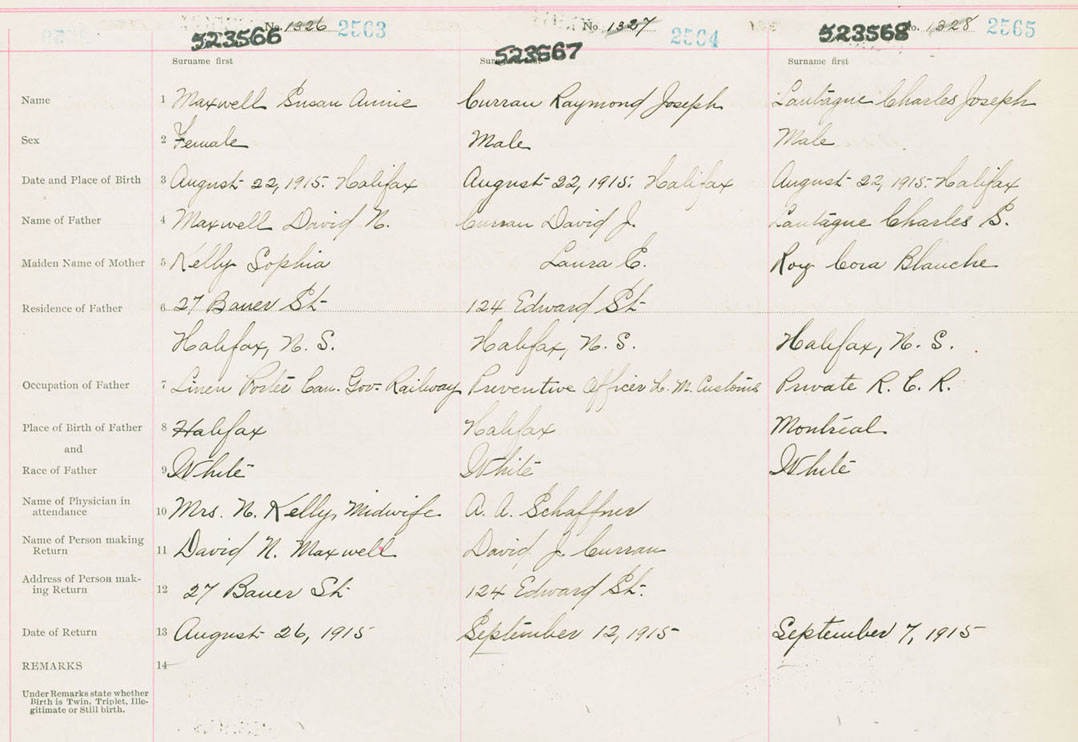 No 1326 2563 No 1327 2564 No. 1328 2565
523566 523567 523568
Surname first Surname first Surname first
Name 1 Maxwell Susan Annie Curran Raymond Joseph Lautague Charles Joseph
Sex 2 Female Male Male
Date and Place of Birth 3 August 22, 1915. Halifax August 22, 1915. Halifax August 22, 1915. Halifax
Name of Father 4 Maxwell David N. Curran David J. Lautague Charles S.
Maiden Name of Mother 5 Kelly Sophia Laura E. Roy Cora Blanche
Residence of Father 6 27 Bauer St. 124 Edward St.
Halifax, N. S. Halifax, N. S. Halifax, N. S.
Occupation of Father 7 Linen Porter Can. Gov. Railway Preventive Officer H. M. Customs Private R. C. R.
Place of Birth of Father 8 Halifax Halifax Montreal
and
Race of Father 9 White White White
Name of Physician in
attendance 10 Mrs. N. Kelly, Midwife A. A. Schaffner
Name of Person making
Return 11 David N. Maxwell David J. Curran
Address of Person mak-
ing Return 12 27 Bauer St. 124 Edward St.
Date of Return 13 August 26, 1915 September 12, 1915 September 7, 1915
REMARKS 14
Under Remarks state whether
Birth is Twin, Triplet, Ille-
gitimate or Still birth.